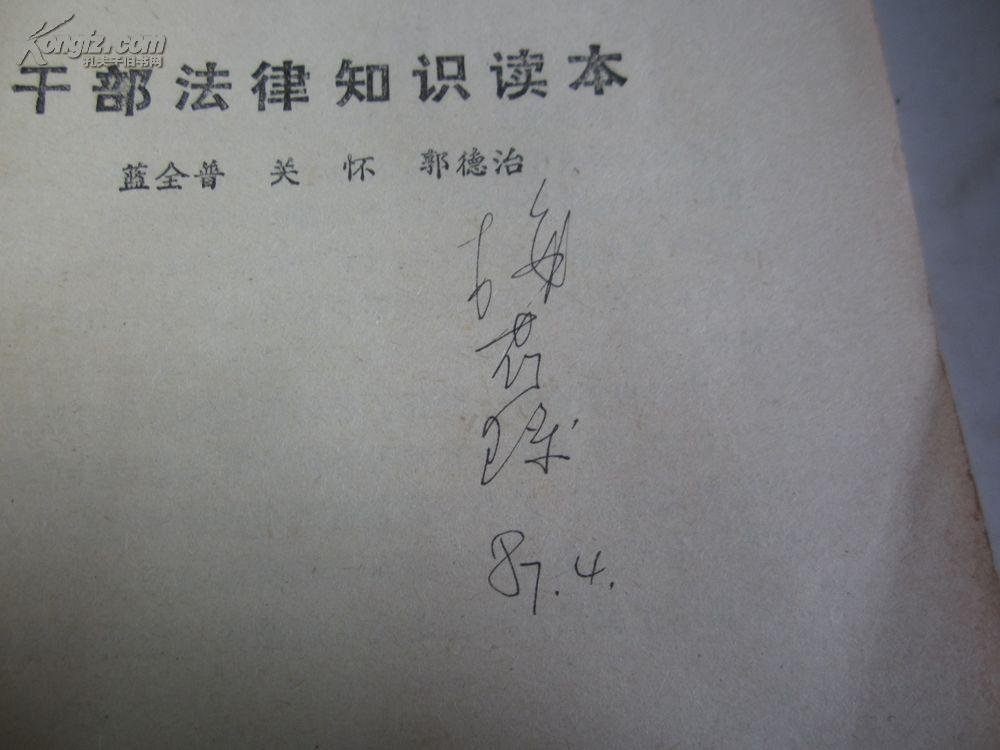 Kongfz.com
孔夫子旧书网
干部法律知识读本
蓝全普 关 怀 郭德治
梅
君
87.4.